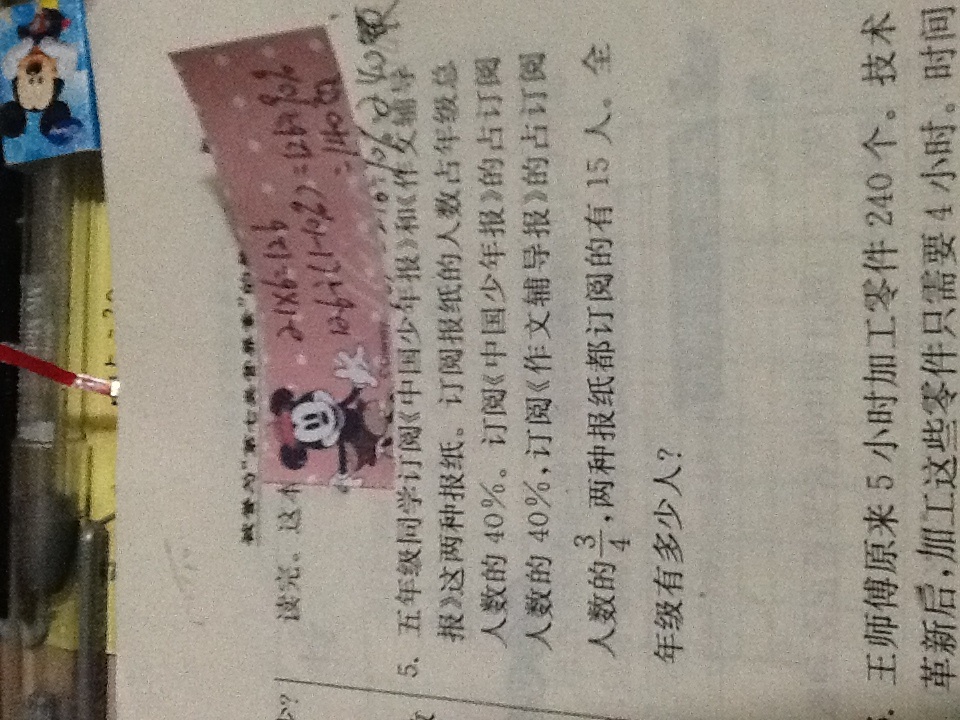 读完。这
21×6=126
126÷(1-10%)=126÷90%
=140
5. 五年级同学订阅《中国少年报》和《作文辅导
报》这两种报纸。订阅报纸的人数占年级总
人数的 40%。订阅《中国少年报》的占订阅
人数的 40%,订阅《作文辅导报》的占订阅
人数的3/4,两种报纸都订阅的有 15 人。全
年级有多少人?
王师傅原来 5 小时加工零件 240 个。技术
革新后,加工这些零件只需要 4 小时。时间